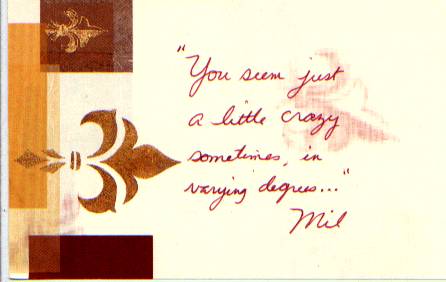 "You seem just
a little crazy
sometimes, in
varying degrees..."
Mil